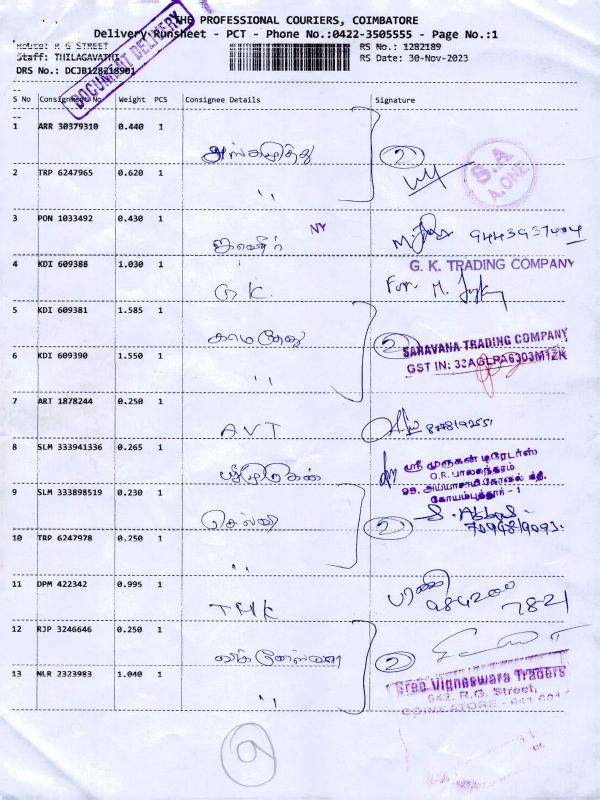 THE PROFESSIONAL COURIERS, COIMBATORE
Delivery Runsheet - PCT - Phone No.:0422-3505555 - Page No.:1
DOCUMENT DELIVERY
Route: R G STREET
RS No.: 1282189
Staff: THILAGAVATHI
RS Date: 30-Nov-2023
DRS No.: DCJB128218901
S No Consignment No Weight PCS Consignee Details Signature
1 ARR 30379310 0.440 1
2
S.A
A.ONE
2 TRP 6247965 0.620 1
〃
3 PON 1033492 0.430 1
NY
9443937404
4 KDI 609388 1.030 1
G.K.
G. K. TRADING COMPANY
For. M.
5 KDI 609381 1.585 1
காமதேனு
2
SARAVANA TRADING COMPANY
GST IN: 33AGLPA6303M1ZK
6 KDI 609390 1.550 1
〃
7 ART 1878244 0.250 1
AVT
8 SLM 333941336 0.265 1
ஸ்ரீ முருகன் டிரேடர்ஸ்
O.R. பாலசுந்தரம்
கோயம்புத்தூர் - 1
9 SLM 333898519 0.230 1
செல்வி
2
S.
10 TRP 6247978 0.250 1
〃
11 DPM 422342 0.995 1
TMK
பரணி
984200
7821
12 RJP 3246646 0.250 1
2
13 NLR 2323983 1.040 1
〃
Sree Vigneswara Traders
642, R.G. Street,
COIMBATORE - 641 001
9